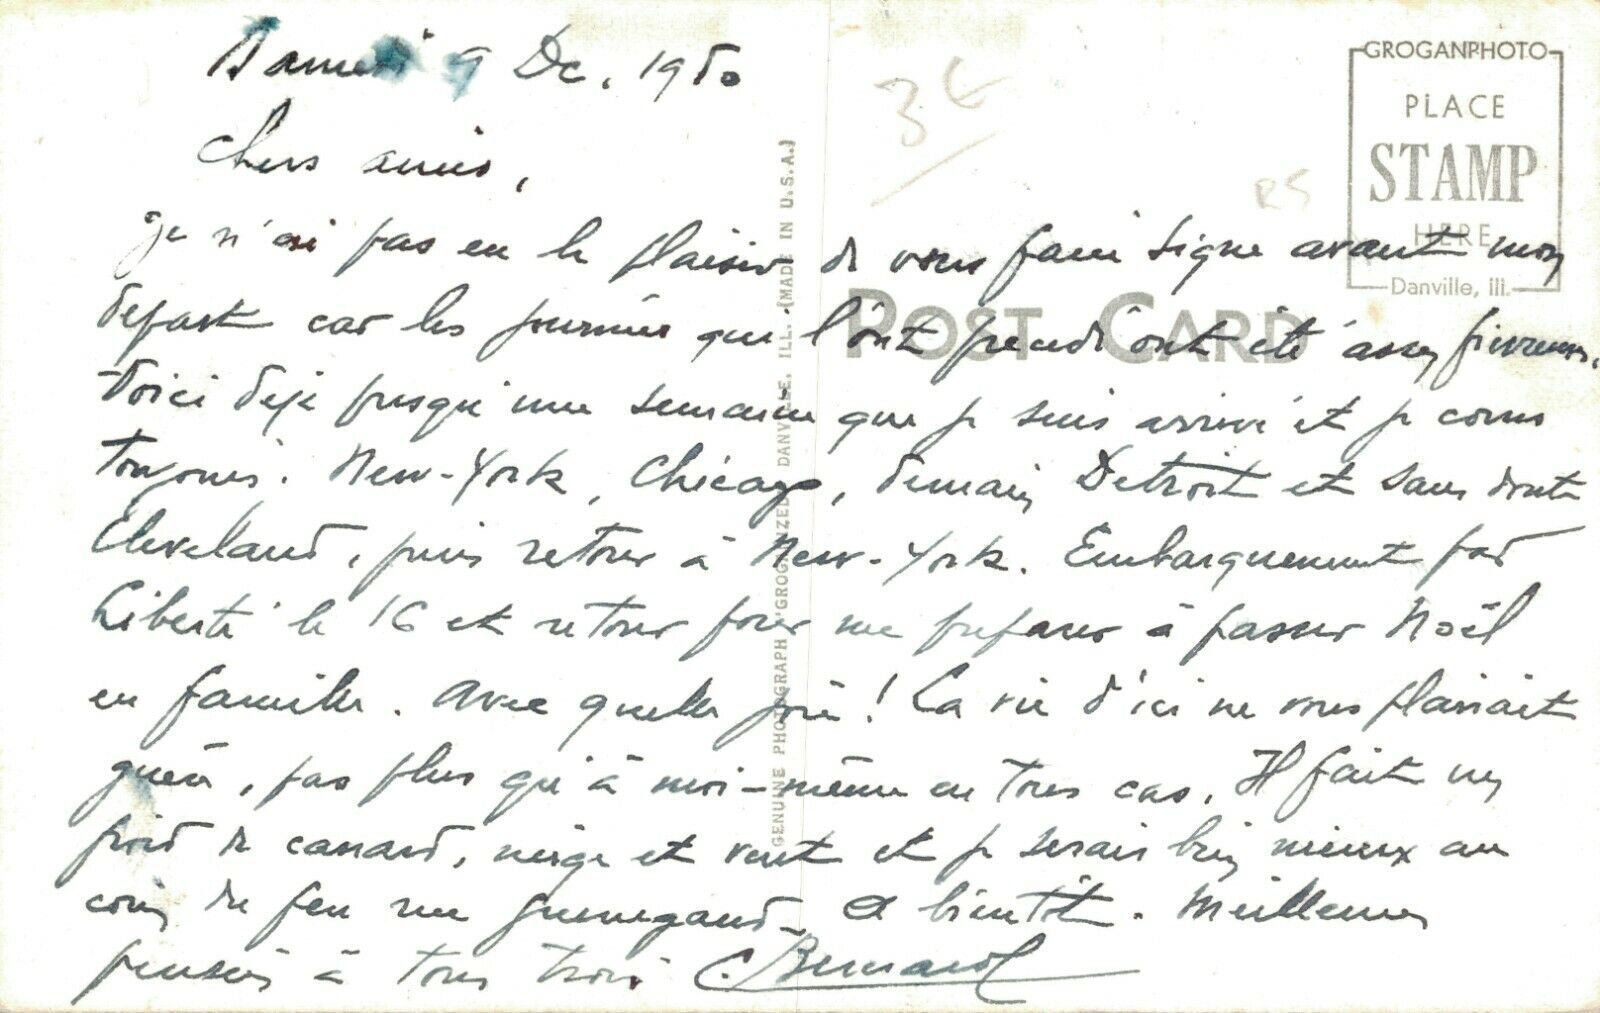 Samedi 9 Dc. 1950
Chers amis,
Je n'ai pas eu le plaisir de vous faire signe avant mon
depart car les journées qui l'ont precedé ont été assez fievreuses.
Voici déjà presqu'une semaine que je suis arrivé et je cours
toujours. New-York, Chicago, demain Detroit et sans doute
Cleveland, puis retour à New-York. Embarquement par
Liberté le 16 et retour pour me preparer à passer Noël
en famille. Avec quelle joie! La vie d'ici ne vous plairait
guère, pas plus qu'à moi-même en tous cas. Il fait un
froid de canard, neige et vent et je serais bien mieux au
coin du feu rue Guénégaud. A bientôt. Meilleures
pensées à tous trois C. Bernard
3€
RS
GROGANPHOTO
PLACE
STAMP
HERE
Danville, Ill.
POST CARD
GENUINE PHOTOGRAPH "GROGANIZED" DANVILLE, ILL. (MADE IN U.S.A.)